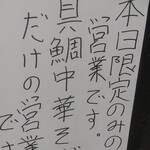 本日限定のみの
営業です。
真鯛中華そば
だけの営業
でき